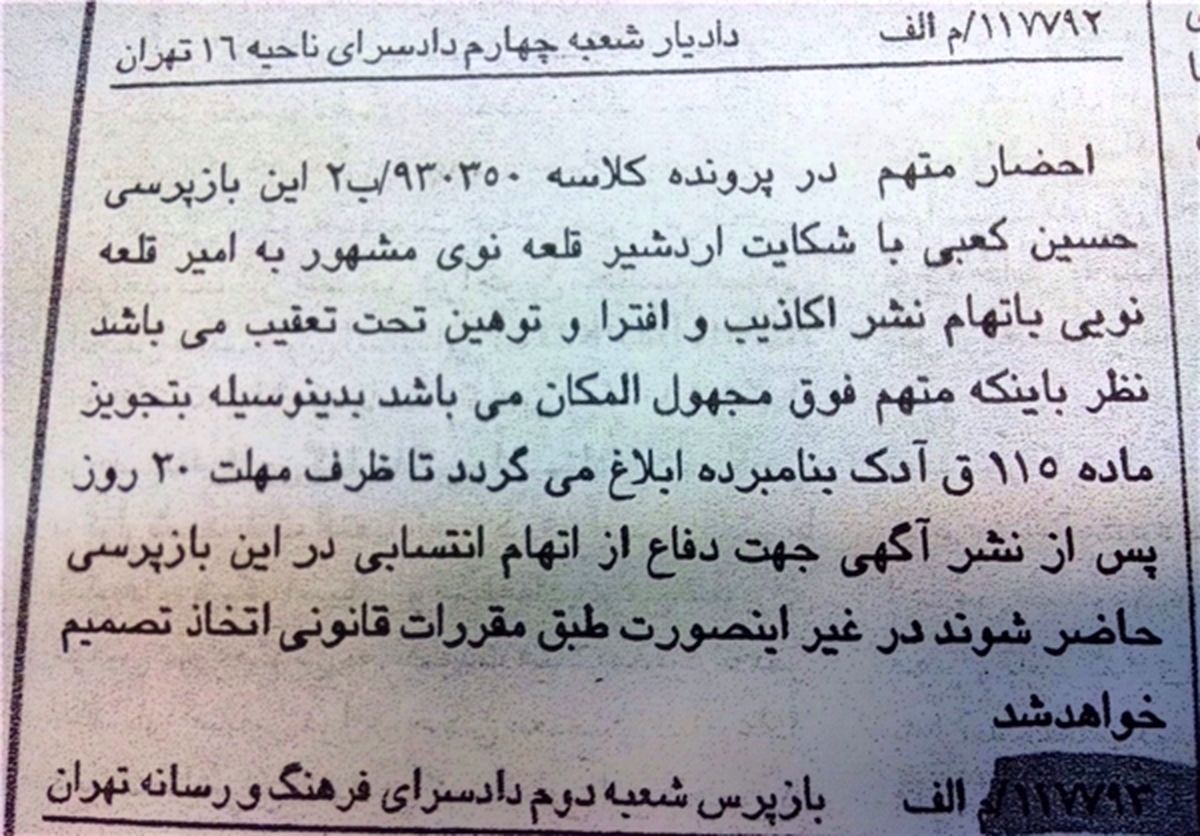 ۱۱۷۷۹۲/م الف دادیار شعبه چهارم دادسرای ناحیه ۱۶ تهران
احضار متهم در پرونده کلاسه ۹۳۰۳۵۰/ب۲ این بازپرسی
حسین کعبی با شکایت اردشیر قلعه نوی مشهور به امیر قلعه
نویی باتهام نشر اکاذیب و افترا و توهین تحت تعقیب می باشد
نظر باینکه متهم فوق مجهول المکان می باشد بدینوسیله بتجویز
ماده ۱۱۵ ق آدک بنامبرده ابلاغ می گردد تا ظرف مهلت ۳۰ روز
پس از نشر آگهی جهت دفاع از اتهام انتسابی در این بازپرسی
حاضر شوند در غیر اینصورت طبق مقررات قانونی اتخاذ تصمیم
خواهدشد
۱۱۷۷۹۳/م الف بازپرس شعبه دوم دادسرای فرهنگ و رسانه تهران